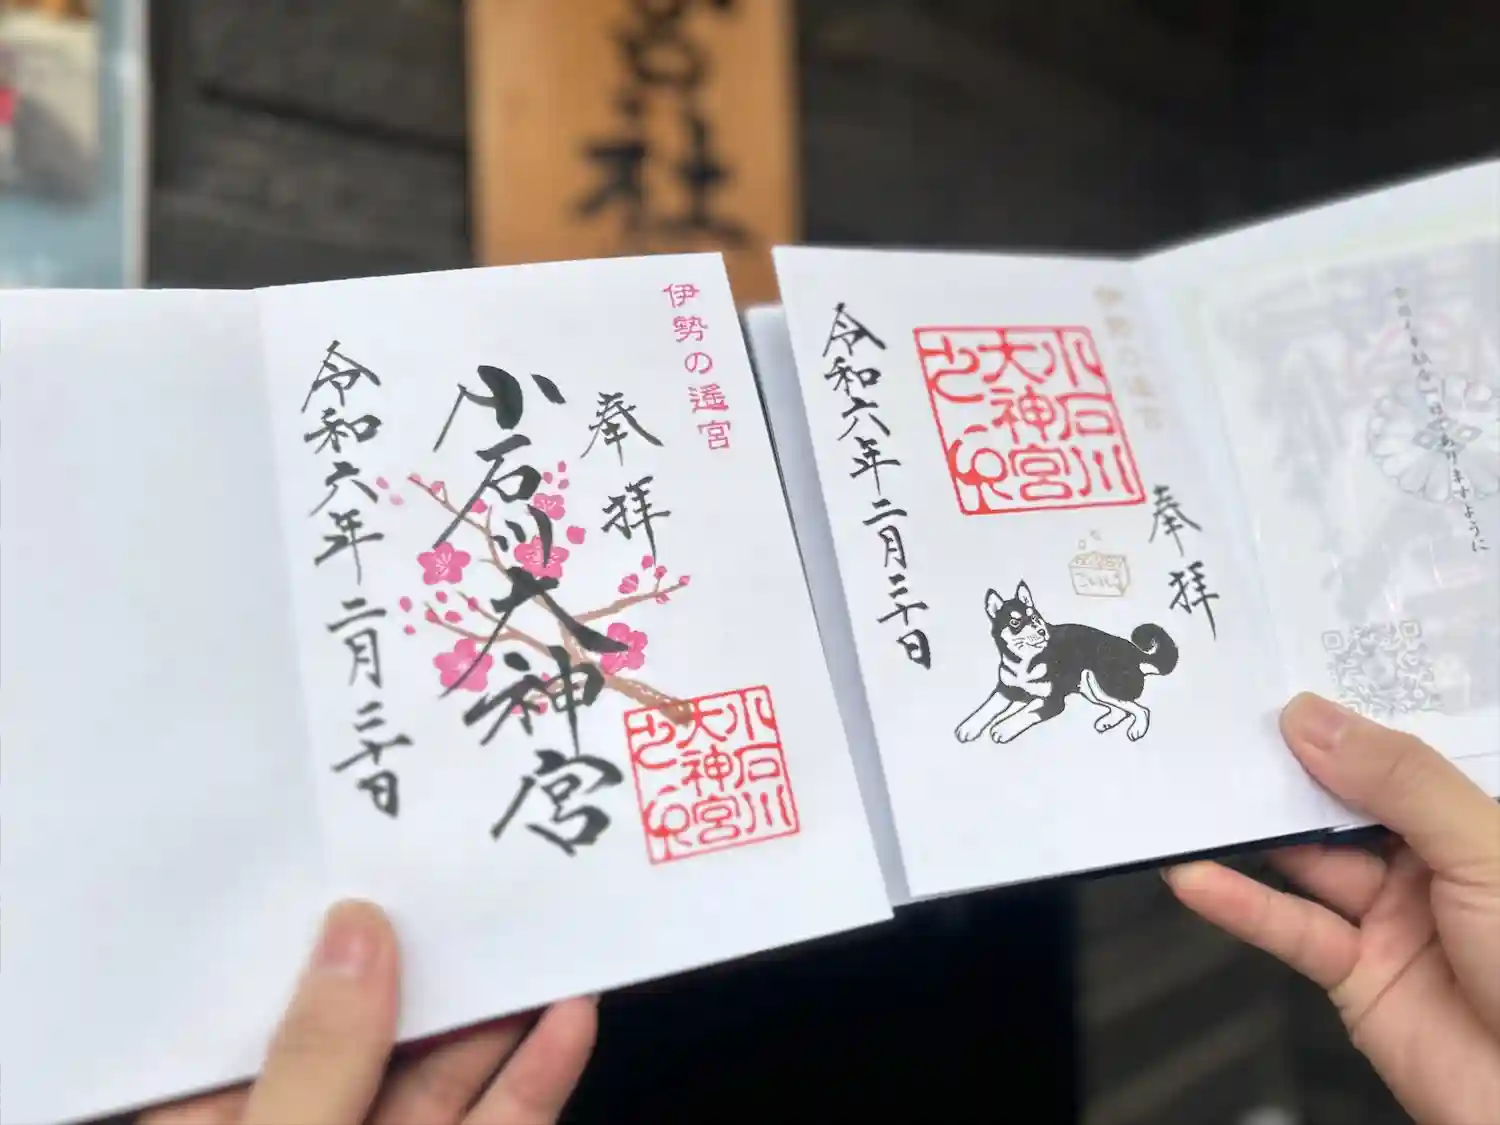 社
伊勢の遙宮
奉拝
小石川大神宮
令和六年二月二十日
小石川
大神宮
之印
伊勢の遙宮
奉拝
小石川
大神宮
之印
令和六年二月二十日
ますように